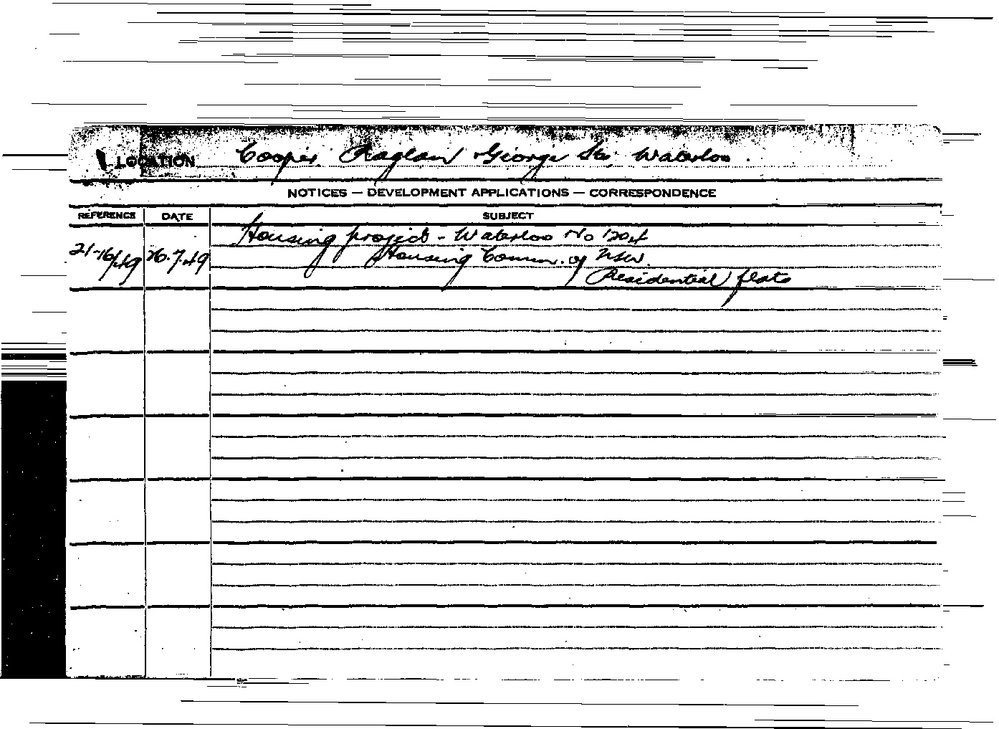 LOCATION Cooper Raglan George Sts. Waterloo.
NOTICES — DEVELOPMENT APPLICATIONS — CORRESPONDENCE
REFERENCE DATE SUBJECT
Housing project - Waterloo No 1204
21-16/49 26.7.49 Housing Commn. of NSW.
Residential flats